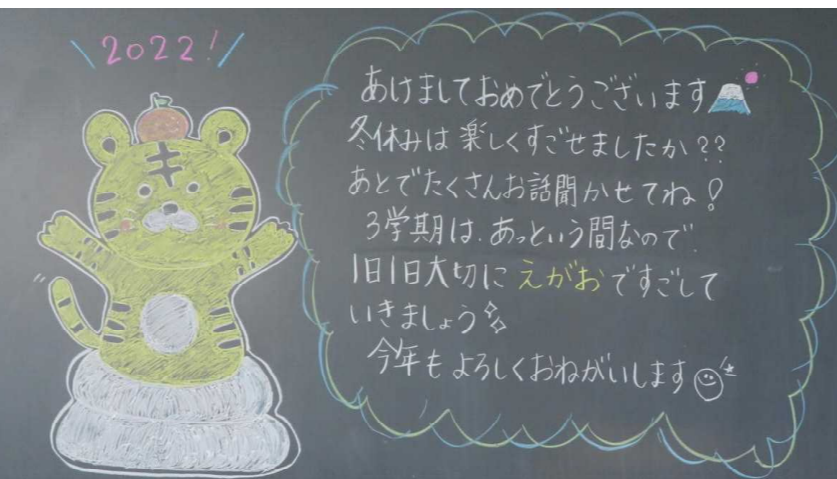 2022!
あけましておめでとうございます
冬休みは楽しくすごせましたか??
あとでたくさんお話聞かせてね!
3学期は、あっという間なので
1日1日大切にえがおですごして
いきましょう
今年もよろしくおねがいします